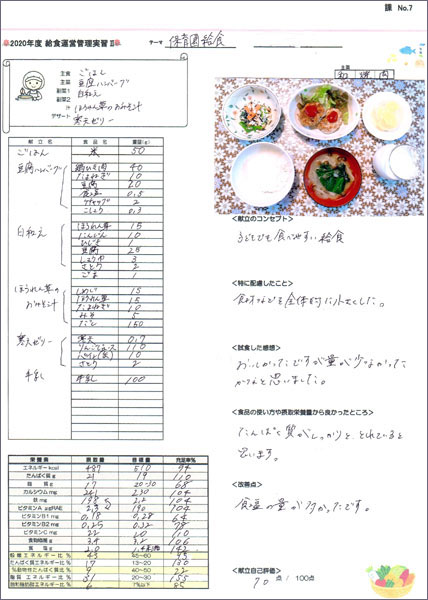 課 No.7
2020年度 給食運営管理実習Ⅱ
テーマ 保育園給食
主食 ごはん
主菜 豆腐ハンバーグ
副菜1 白和え
副菜2
汁 ほうれん草のおみそ汁
デザート 寒天ゼリー
献立名 食品名 重量(g)
ごはん 米 50
豆腐ハンバーグ 鶏ひき肉 40
たまねぎ 10
豆腐
0.5
ケチャップ 2
こしょう 0.3
白和え ほうれん草 15
にんじん 10
ひじき 1
豆腐 25
しょうゆ 3
さとう 2
ごま 1
ほうれん草のおみそ汁 しめじ 15
ほうれん草 15
たまねぎ 10
みそ 5
だし 150
寒天ゼリー 寒天 0.7
りんごジュース
さとう 2
牛乳 牛乳 100
栄養素 摂取量 目標量 充足率%
エネルギー kcal 487 510 94
たんぱく質 g 21 19 110
脂質 g 17 20-30
カルシウム mg 241 230 104
鉄 mg 104
ビタミンA μgRAE 190 104
ビタミンB1 mg 0.18 0.28 64
ビタミンB2 mg 0.25 0.32 78
ビタミンC mg 22 110
食物繊維 g 3.4 3.2 106
食塩 g 2.0 142
穀類エネルギー比 % 43 45-60 95
たんぱく質エネルギー比 % 17 13-20 130
%動物性たんぱく質比 % 9 40-50 22
脂質エネルギー比 % 31 20-30 155
飽和脂肪酸エネルギー比 % 6 7%以下 85
<献立のコンセプト>
子どもでも食べやすい給食
<特に配慮したこと>
食材などを全体的に小さくした。
<試食した感想>
おいしかったですが量が少なかった
かなと思いました。
<食品の使い方や摂取栄養量から良かったところ>
たんぱく質がしっかりと、とれていると
思います。
<改善点>
食塩の量が多かったです。
<献立自己評価>
70 点 / 100点